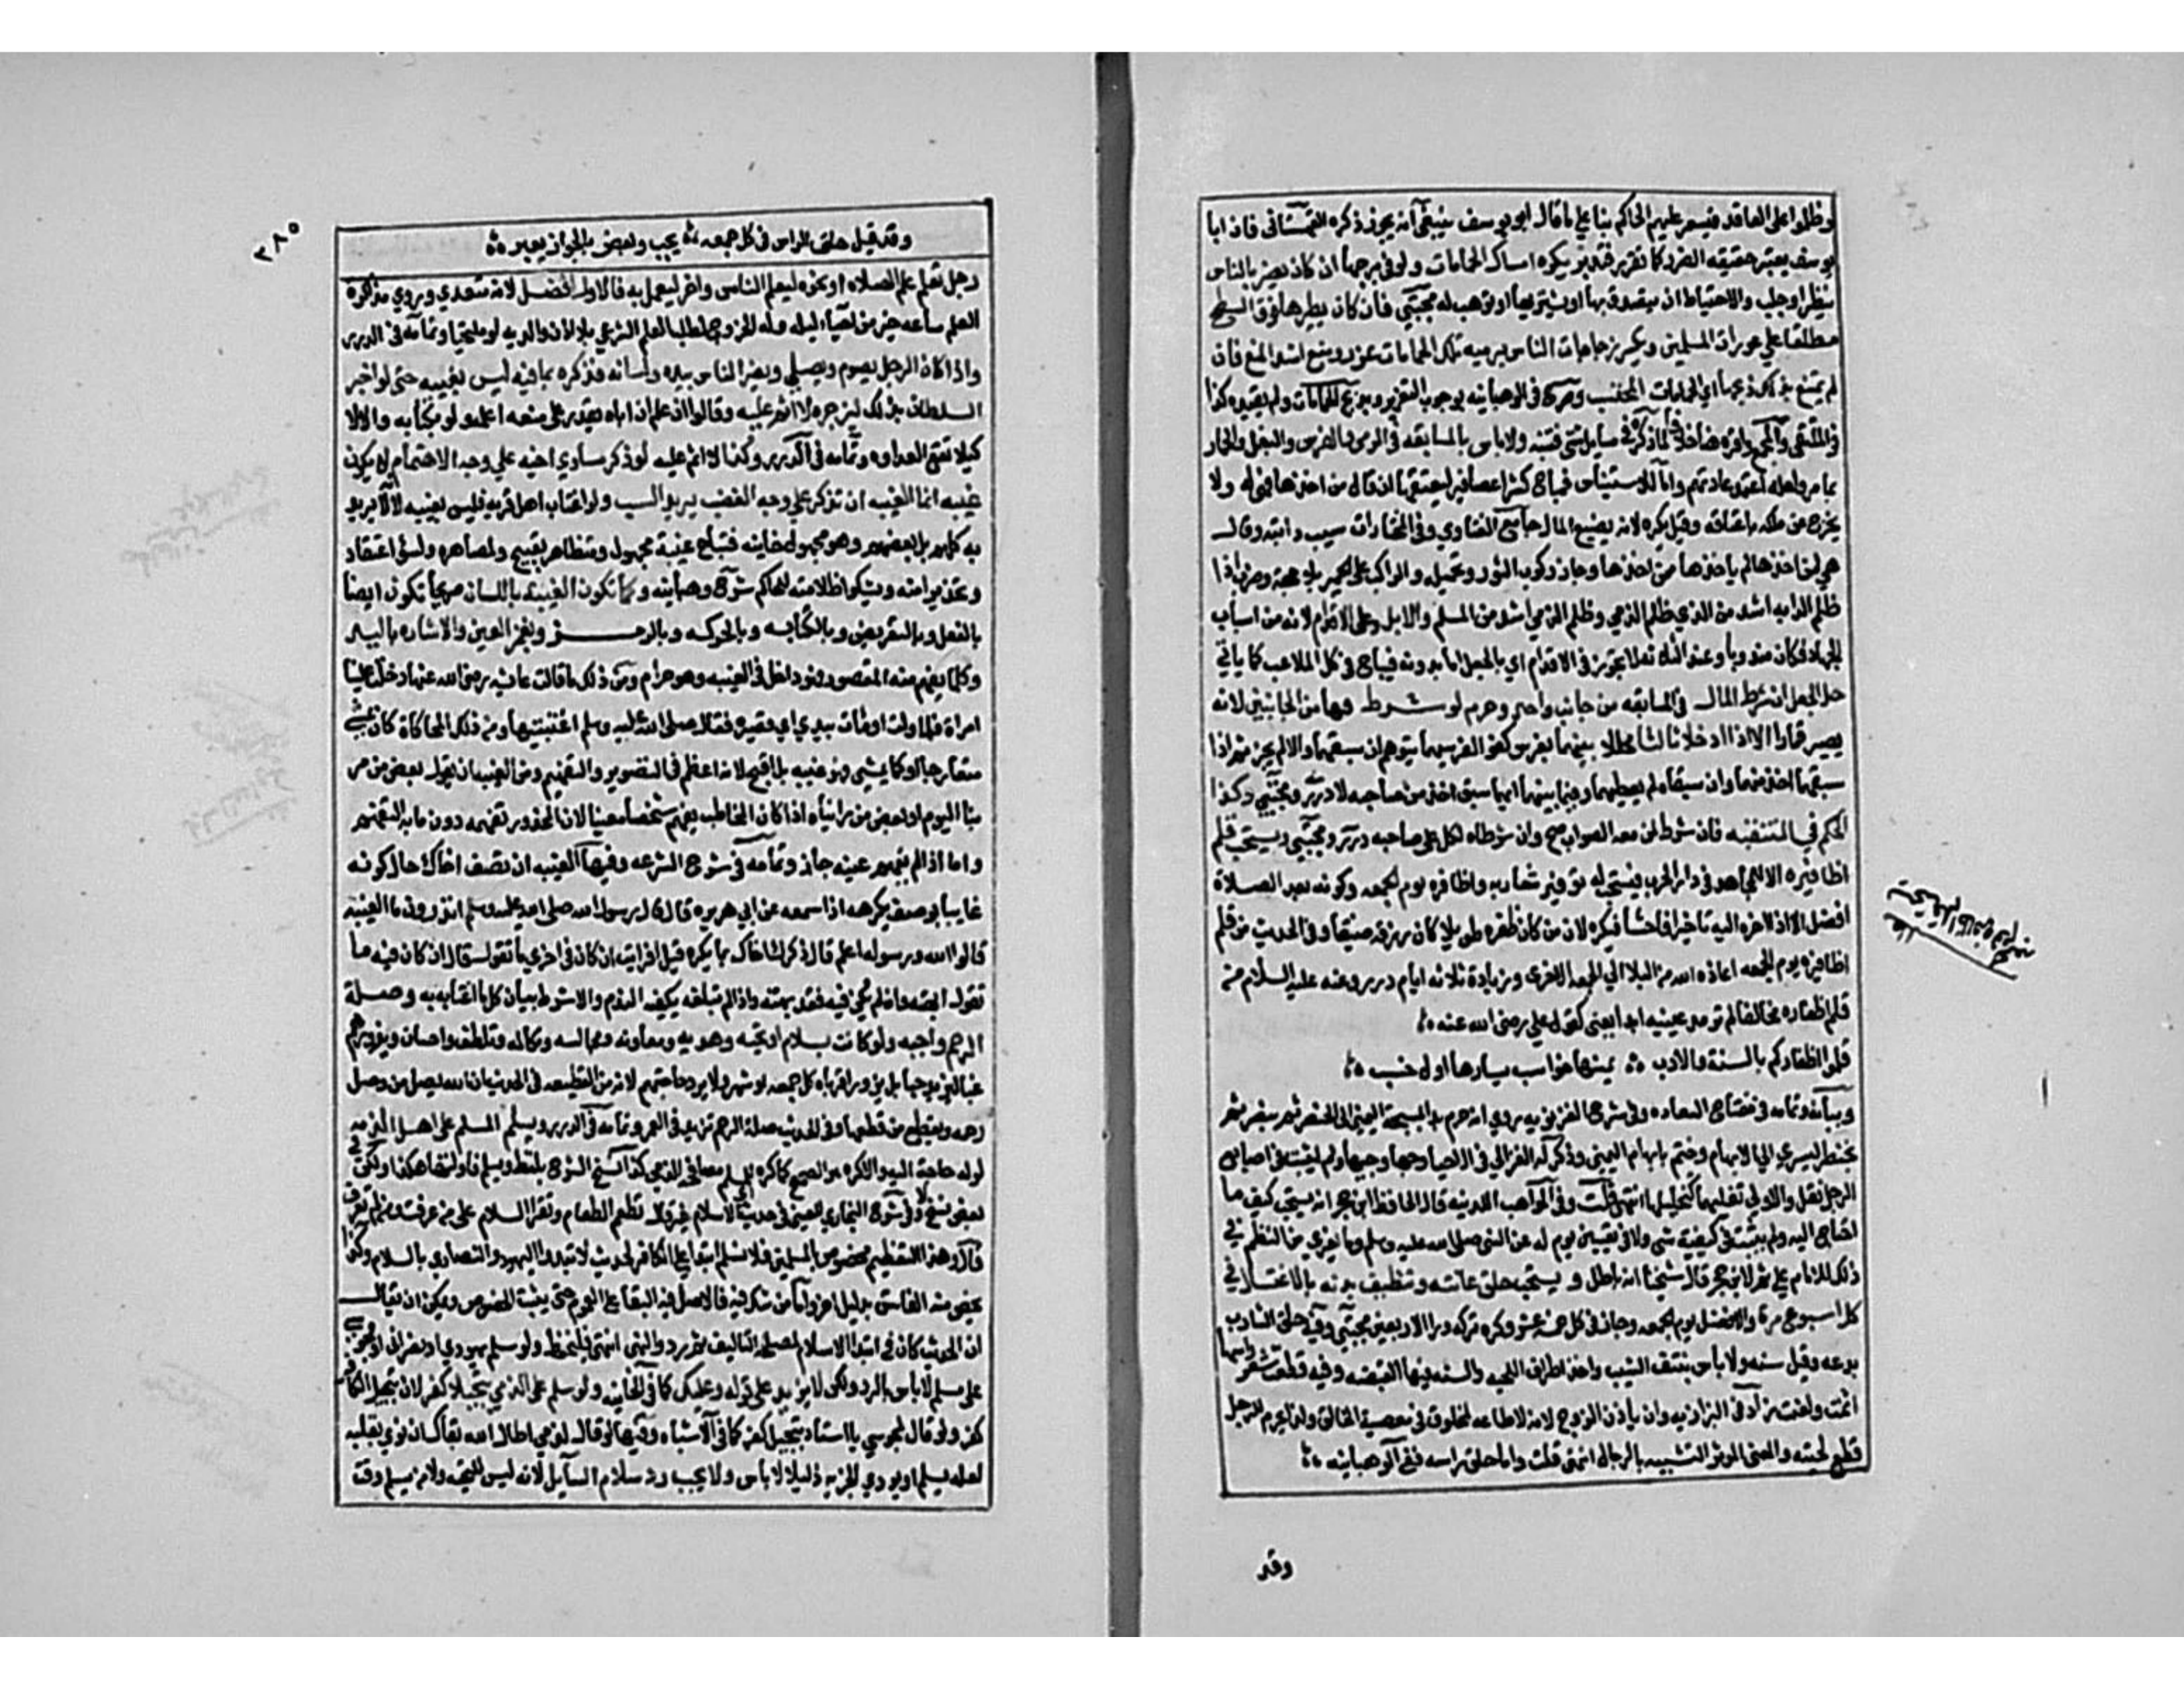 وظلموا على العاقد فيسعر عليهم الحاكم بنا على ما قال ابو يوسف ينبغي انه يجوز ذكره القهستاني فان ابا
يوسف يعتبر حقيقه الضرر كما تقرر فتدبر ويكره امساك الحمامات ولو في برجها ان كان يضر بالناس
بنظر او جلب والاحتياط ان يتصدق بها او يشتريها او توهب له مجتبي فان كان يطيرها فوق السطح
مطلعا على عورات المسلمين ويكسر زجاجات الناس برميه تلك الحمامات عزر ومنع اشد المنع فان
لم يمتنع بذلك ذبحها اي الحمامات المحتسب وصرح في الوهبانيه بوجوب التعزير وبذبح الحمامات ولم يقيده
بما مر ولعله اعتمد عادتهم واما للاستيناس فمباح كشرا عصافير ليعتقها ان قال من اخذها فهي له ولا
يخرج عن ملكه باعتاقه وقيل يكره لانه يضيع المال جامع الفتاوي وفي المختارات سيب دابته وقال
هي لمن اخذها لم ياخذها ممن اخذها وجاز ركوب الثور وتحميله والكراب على الحمير بلا جهد وضرب اذا
ظلم الدابه اشد من الذمي وظلم الذمي اشد من المسلم والابل وعلى الاقدام لانه من اسباب
الجهاد فكان مندوبا وعند الثلاثه لا يجوز في الاقدام اي بالجعل اما بدونه فيباح في كل الملاعب كما ياتي
حل الجعل ان شرط المال في المسابقه من جانب واحد وحرم لو شرط فيها من الجانبين لانه
يصير قمارا الا اذا ادخلا ثالثا محللا بينهما بفرس كفو لفرسيهما يتوهم ان يسبقهما والا لم يجز ثم اذا
سبقهما اخذ منهما وان سبقاه لم يعطهما وفيما بينهما ايهما سبق اخذ من صاحبه درر ومجتبي وكذا
الحكم في المتفقهه فان شرط لمن معه الصواب صح وان شرطاه لكل على صاحبه درر ومجتبي ويستحب قلم
اظافيره الا لمجاهد في دار الحرب فيستحب له توفير شاربه واظافره يوم الجمعه وكونه بعد الصلاة
افضل الا اذا اخره اليه تاخيرا فاحشا فيكره لان من كان ظفره طويلا كان رزقه ضيقا وفي الحديث من قلم
اظافيره يوم الجمعه اعاذه الله من البلا الي الجمعه الاخرى وزيادة ثلاثه ايام درر وعنه عليه السلام من
قلم اظفاره مخالفا لم ترمد عينيه ابدا يعني كقول علي رضي الله عنه
قلموا اظفاركم بالسنة والادب يمينها خوابس يسارها اوخسب
وبيانه وتمامه في مفتاح السعاده وفي شرح الغزنويه روي انه عليه م بدا بمسبحة اليمنى الى الخنصر ثم
بخنصر اليسري الي الابهام وختم بابهام اليمنى وذكر له الغزالي في الاحيا وجها وجيها ولم يثبت في اصابع
الرجل نقل والاولي تقليمها كتخليلها انتهى قلت وفي المواهب اللدنيه قال الحافظ ابن حجر انه يستحب كيف ما
احتاج اليه ولم يثبت في كيفيته شي ولا في تعيين يوم له عن النبي صلى الله عليه وسلم وما يعزى من النظم في
ذلك للامام علي ثم لابن حجر قال شيخنا انه باطل و يستحب حلق عانته وتنظيف بدنه بالاغتسال في
كل اسبوع مرة والافضل يوم الجمعه وجاز في كل خمسة عشر وكره تركه ورا الاربعين مجتبي وفيه حلق الشارب
بدعه وقيل سنه ولا باس بنتف الشيب واخذ اطراف اللحيه والسنه فيها القبضه وفيه قطعت شعر راسها
اثمت ولعنت زاد في البزازيه وان باذن الزوج لانه لا طاعه لمخلوق في معصية الخالق ولذا يحرم للرجل
قطع لحيته والمعنى الموثر التشبيه بالرجال انتهى قلت واما حلق راسه ففي الوهبانيه
وقد
٢٨٥
وقد قيل حلق الراس في كل جمعه يحب وبعض بالجواز يعبر
رجل تعلم علم الصلاه او نحوه ليعلم الناس واخر ليعمل به فالاول افضل لانه متعدي وروي مذاكرة
العلم ساعه خير من احياء ليله وله الخروج لطلب العلم الشرعي بلا اذن والديه لو ملتحيا وتمامه في الدرر
واذا كان الرجل يصوم ويصلي ويضر الناس بيده ولسانه فذكره بما فيه ليس بغيبه حتى لو اخبر
السلطان بذلك ليزجره لا اثم عليه وقالوا ان علم ان اباه يقدر على منعه اعلمه ولو بكتابه والا لا
كيلا تقع العداوه وتمامه في الدرر وكذا لا اثم عليه لو ذكر مساوي اخيه علي وجه الاهتمام لا يكون
غيبه انما الغيبه ان تذكر على وجه الغضب يريد السب ولو اغتاب اهل قريه فليس بغيبه لانه لا يريد
به كلهم بل بعضهم وهو مجهول خانيه فتباح غيبة مجهول ومتظاهر بقبيح ولمصاهره ولسؤ اعتقاد
وتحذيرا منه ولشكوا ظلامته للحاكم شرح وهبانيه وكما تكون الغيبه باللسان صريحا تكون ايضا
بالفعل وبالتعريض وبالكتابه وبالحركه وبالرمز وبغمز العين والاشاره باليد
وكلما يفهم منه المقصود فهو داخل في الغيبه وهو حرام ومن ذلك ما قالت عائشه رضي الله عنها دخلت علينا
امراة فلما ولت اومات بيدي اي قصيره فقال صلى الله عليه وسلم اغتبتيها ومن ذلك المحاكاة كان يمشي
متعارجا او كما يمشي فهو غيبه بل اقبح لانه اعظم في التصوير والتفهيم ومن الغيبه ان يقول بعض من مر
بنا اليوم او بعض من رايناه اذا كان المخاطب يفهم شخصا معينا لان المحذور تفهيمه دون ما به التفهيم
واما اذا لم يفهم عينه جاز وتمامه في شرح الشرعه وفيها الغيبه ان تصف اخاك حال كونه
غايبا بوصف يكرهه اذا سمعه عن ابي هريره قال قال رسول الله صلى الله عليه وسلم اتدرون ما الغيبه
قالوا الله ورسوله اعلم قال ذكرك اخاك بما يكره قيل افرايت ان كان في اخي ما تقول قال ان كان فيه ما
تقول اغتبته وان لم يكن فيه فقد بهته واذا لم تبلغه يكفيه الندم والا شرط بيان كل ما اغتابه به وصلة
الرحم واجبه ولو كانت بسلام او تحيه وهديه ومعاونه ومجالسه ومكالمه وتلطف واحسان ويزورهم
غبا ليزيد حبا بل يزور اقرباه كل جمعه او شهر ولا يرد حاجتهم لانه من القطيعه في الحديث ان الله يصل من وصل
رحمه ويقطع من قطعها وفي الحديث صلة الرحم تزيد في العمر وتمامه في الدرر ويسلم المسلم على اهل الذمه
لو له حاجة اليه والا كره هو الصحيح كما كره للمسلم مصافحه الذمي كذا في نسخ الشرح بلفظ ويسلم فاولتها هكذا ولكن في
بعض نسخ وفي شرح البخاري للعيني في حديث اي الاسلام خير قال تطعم الطعام وتقرا السلام على من عرفت ومن لم تعرف
قال وهذا التعظيم مخصوص بالمسلمين فلا يسلم ابتدا على الكافر لحديث لا تبدوا اليهود والنصارى بالسلام وكذا
يخص منه الفاسق بدليل اخر واما من شك فيه فالاصل فيه البقا على العموم حتى يثبت الخصوص ويمكن ان يقال
ان الحديث كان في ابتدا الاسلام لمصلحة التاليف ثم ورد النهي انتهى فليحفظ ولو سلم يهودي او نصراني او مجوسي
على مسلم لا باس بالرد ولكن لا يزيد على قوله وعليك كما في الخانيه ولو سلم على الذمي تبجيلا كفر لان تبجيل الكافر
كفر ولو قال لمجوسي يا استاد تبجيلا كفر كما في الاشباه وفيها لو قال لذمي اطال الله بقاك ان نوي بقلبه
لعله يسلم او يودي الجزيه ذليلا لا باس ولا يجب رد سلام السايل لانه ليس للتحيه ولا من يسلم وقت